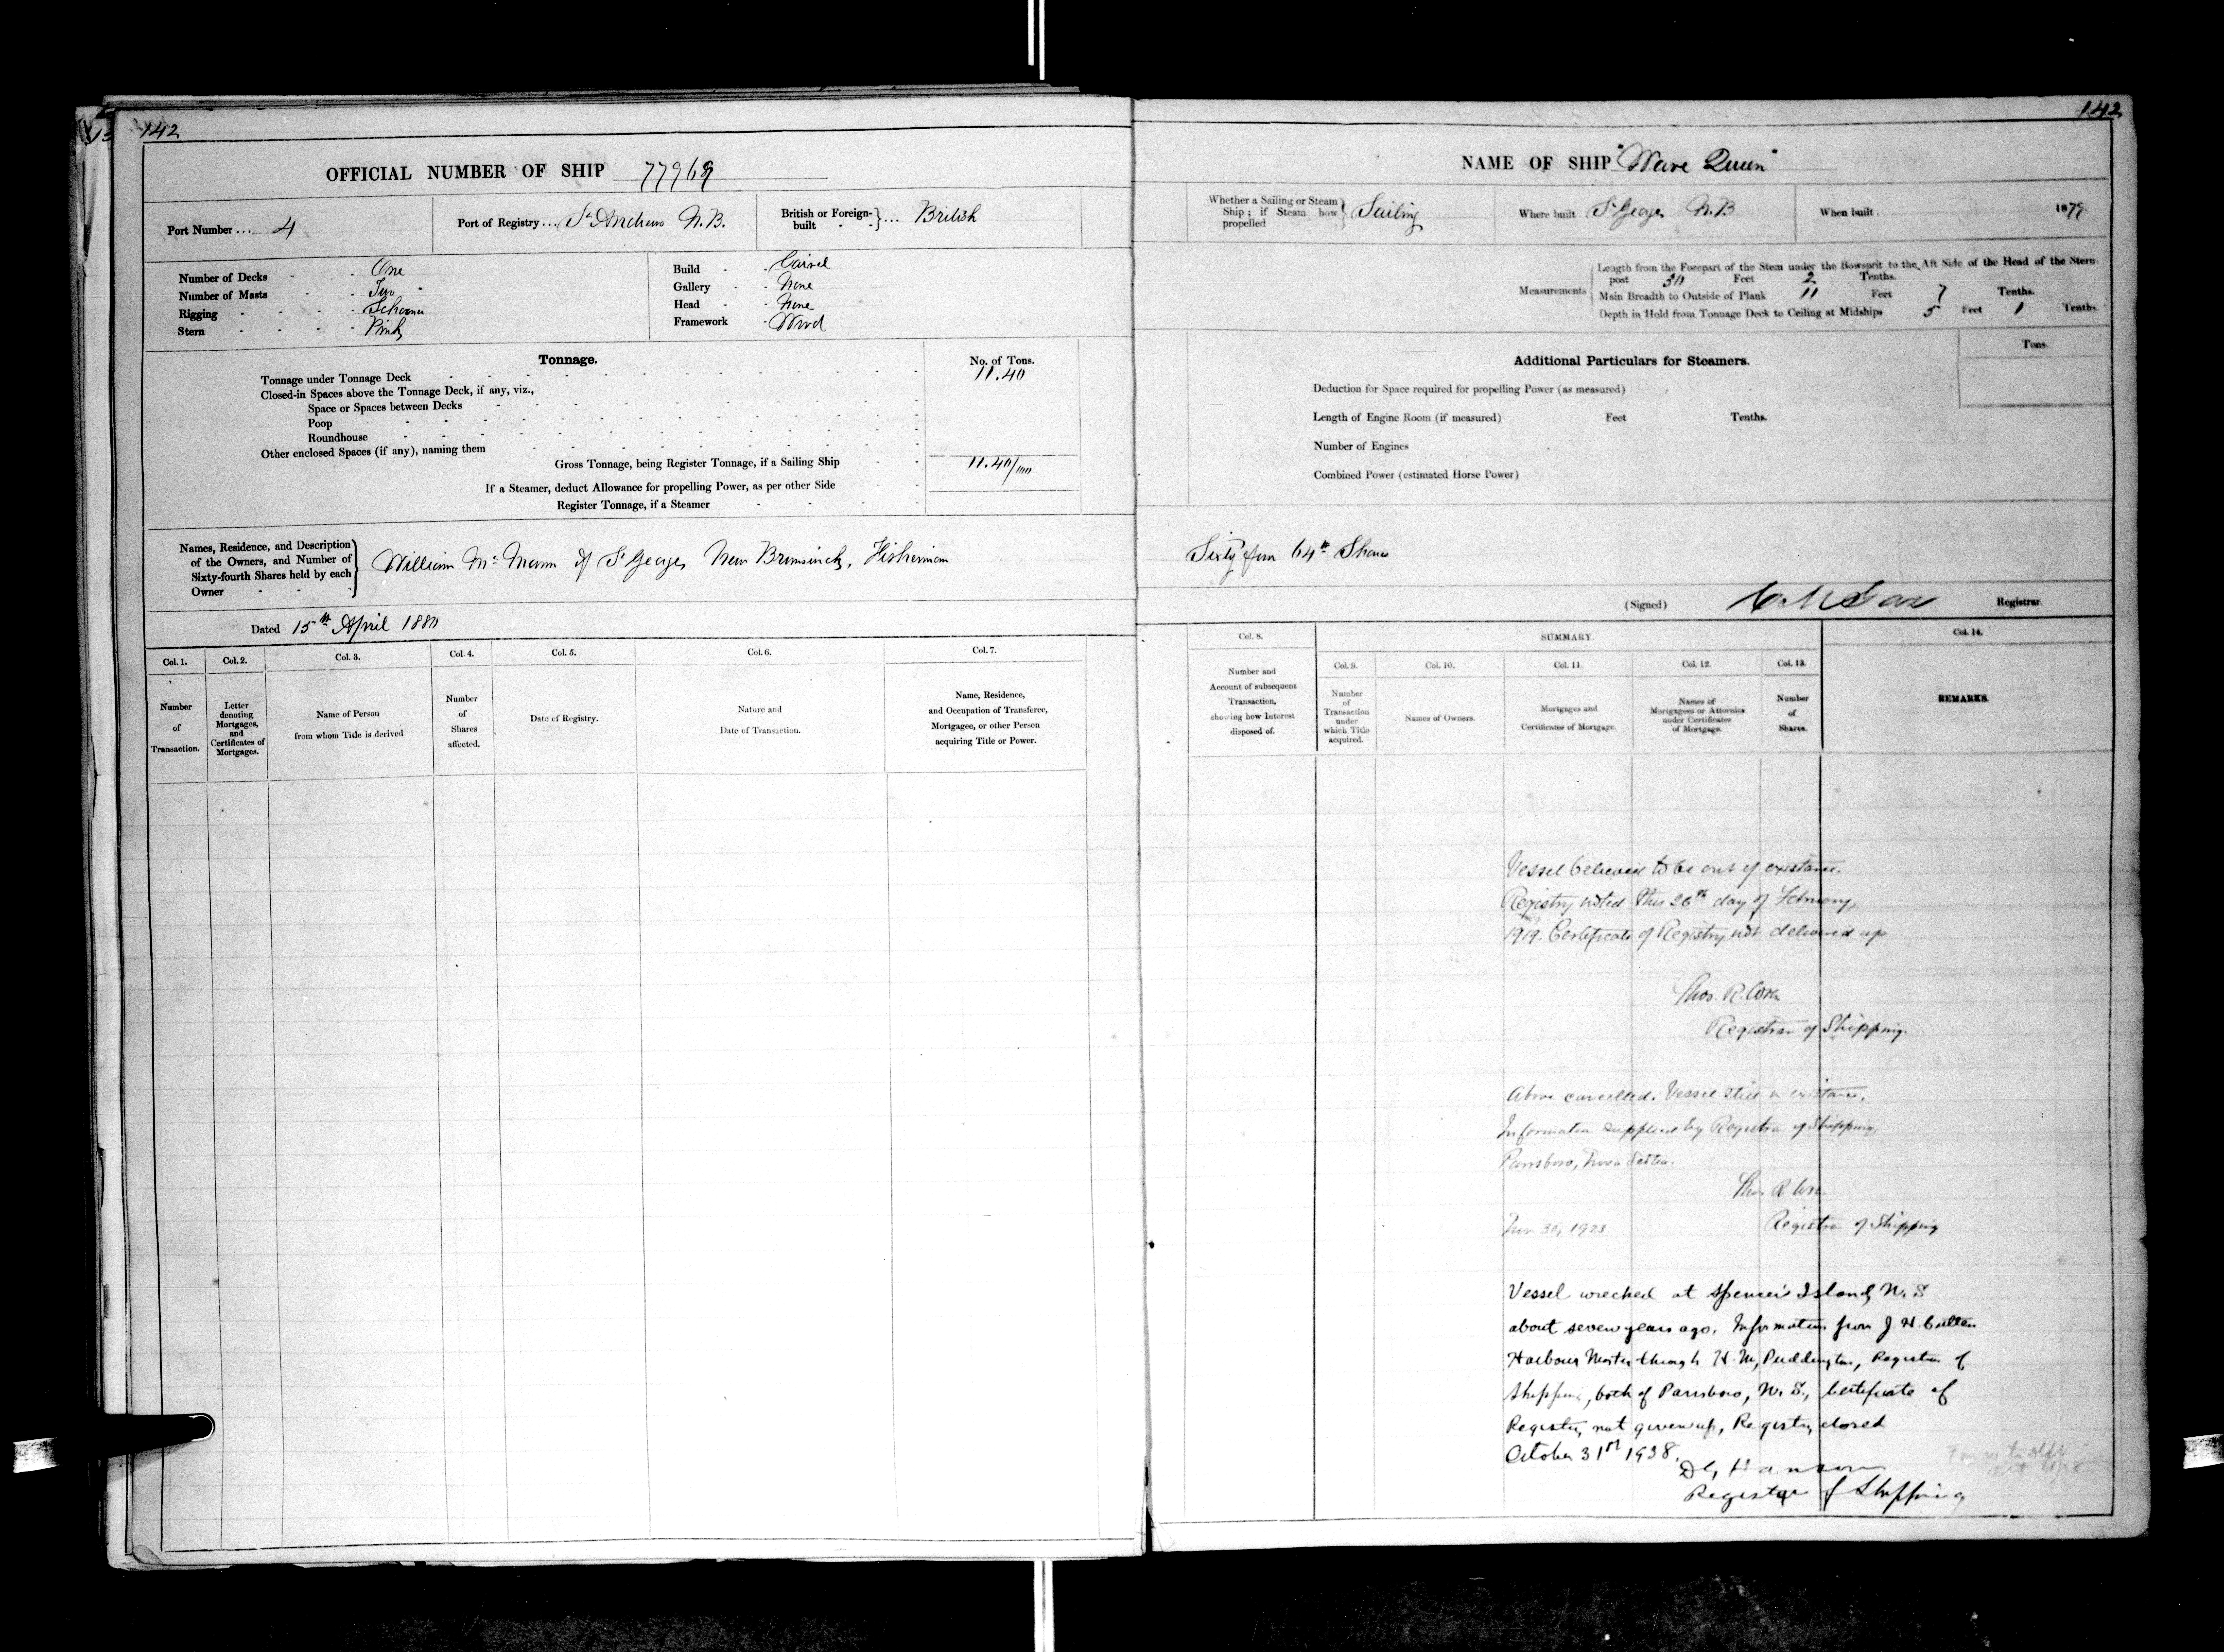 142
OFFICIAL NUMBER OF SHIP 77969
Port Number ... 4
Port of Registry ... St Andrews N.B.
British or Foreign-built } ... British
Number of Decks - - One
Number of Masts - - Two
Rigging - - - - Schooner
Stern - - - - Pink
Build - - Carvel
Gallery - - None
Head - - None
Framework - Wood
Tonnage.
No. of Tons.
Tonnage under Tonnage Deck 11.40
Closed-in Spaces above the Tonnage Deck, if any, viz.,
Space or Spaces between Decks
Poop
Roundhouse
Other enclosed Spaces (if any), naming them
Gross Tonnage, being Register Tonnage, if a Sailing Ship 11.40/100
If a Steamer, deduct Allowance for propelling Power, as per other Side
Register Tonnage, if a Steamer
Names, Residence, and Description of the Owners, and Number of Sixty-fourth Shares held by each Owner } William Mc Mann of St George, New Brunswick, Fisherman
Dated 15th April 1880
Col. 1. Number of Transaction.
Col. 2. Letter denoting Mortgages, and Certificates of Mortgages.
Col. 3. Name of Person from whom Title is derived
Col. 4. Number of Shares affected.
Col. 5. Date of Registry.
Col. 6. Nature and Date of Transaction.
Col. 7. Name, Residence, and Occupation of Transferee, Mortgagee, or other Person acquiring Title or Power.
142
NAME OF SHIP "Wave Queen"
Whether a Sailing or Steam Ship; if Steam how propelled } Sailing
Where built St George N.B
When built 1879
Measurements
Length from the Forepart of the Stem under the Bowsprit to the Aft Side of the Head of the Stern-
post 30 Feet 2 Tenths.
Main Breadth to Outside of Plank 11 Feet 7 Tenths.
Depth in Hold from Tonnage Deck to Ceiling at Midships 5 Feet 1 Tenths.
Additional Particulars for Steamers.
Tons.
Deduction for Space required for propelling Power (as measured)
Length of Engine Room (if measured) Feet Tenths.
Number of Engines
Combined Power (estimated Horse Power)
Sixty four 64th Shares
(Signed) Registrar.
Col. 8. Number and Account of subsequent Transaction, showing how Interest disposed of.
SUMMARY.
Col. 9. Number of Transaction under which Title acquired.
Col. 10. Names of Owners.
Col. 11. Mortgages and Certificates of Mortgage.
Col. 12. Names of Mortgagees or Attornies under Certificates of Mortgage.
Col. 13. Number of Shares.
Col. 14. REMARKS.
Vessel believed to be out of existance.
Registry noted this 26th day of February,
1919. Certificate of Registry not delivered up
Thos. R. Wren
Registrar of Shipping.
Above cancelled. Vessel still in existance.
Information supplied by Registrar of Shipping,
Parrsboro, Nova Scotia.
Thos R Wren
30, 1923 Registrar of Shipping
Vessel wrecked at Spencer's Island, N. S
about seven years ago. Information from J. H.
Harbour Master through H. M, Puddington, Registrar of
Shipping, both of Parrsboro, N. S., Certificate of
Registry not given up, Registry closed
October 31st 1938.
Hanson
Registrar of Shipping